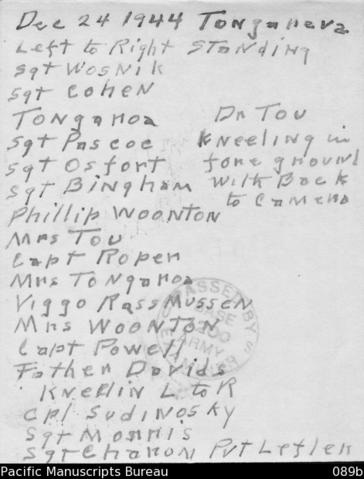 Dec 24 1944 Tongareva
Left to Right Standing
Sgt Wosnik
Sgt Cohen
Tonganoa
Sgt Pascoe
Sgt Osfort
Sgt Bingham
Dr Tou
Kneeling in
fore ground
with Back
to Camera
Phillip Woonton
Mrs Tou
Capt Roper
Mrs Tonganoa
Viggo Rassmussen
Mrs Woonton
Capt Powell
Father Davids
Kneelin L to R
Cpl Sudinosky
Sgt Morris
Sgt Charon Pvt Lefler
PASSED BY
BASE
ARMY
Pacific Manuscripts Bureau
089b